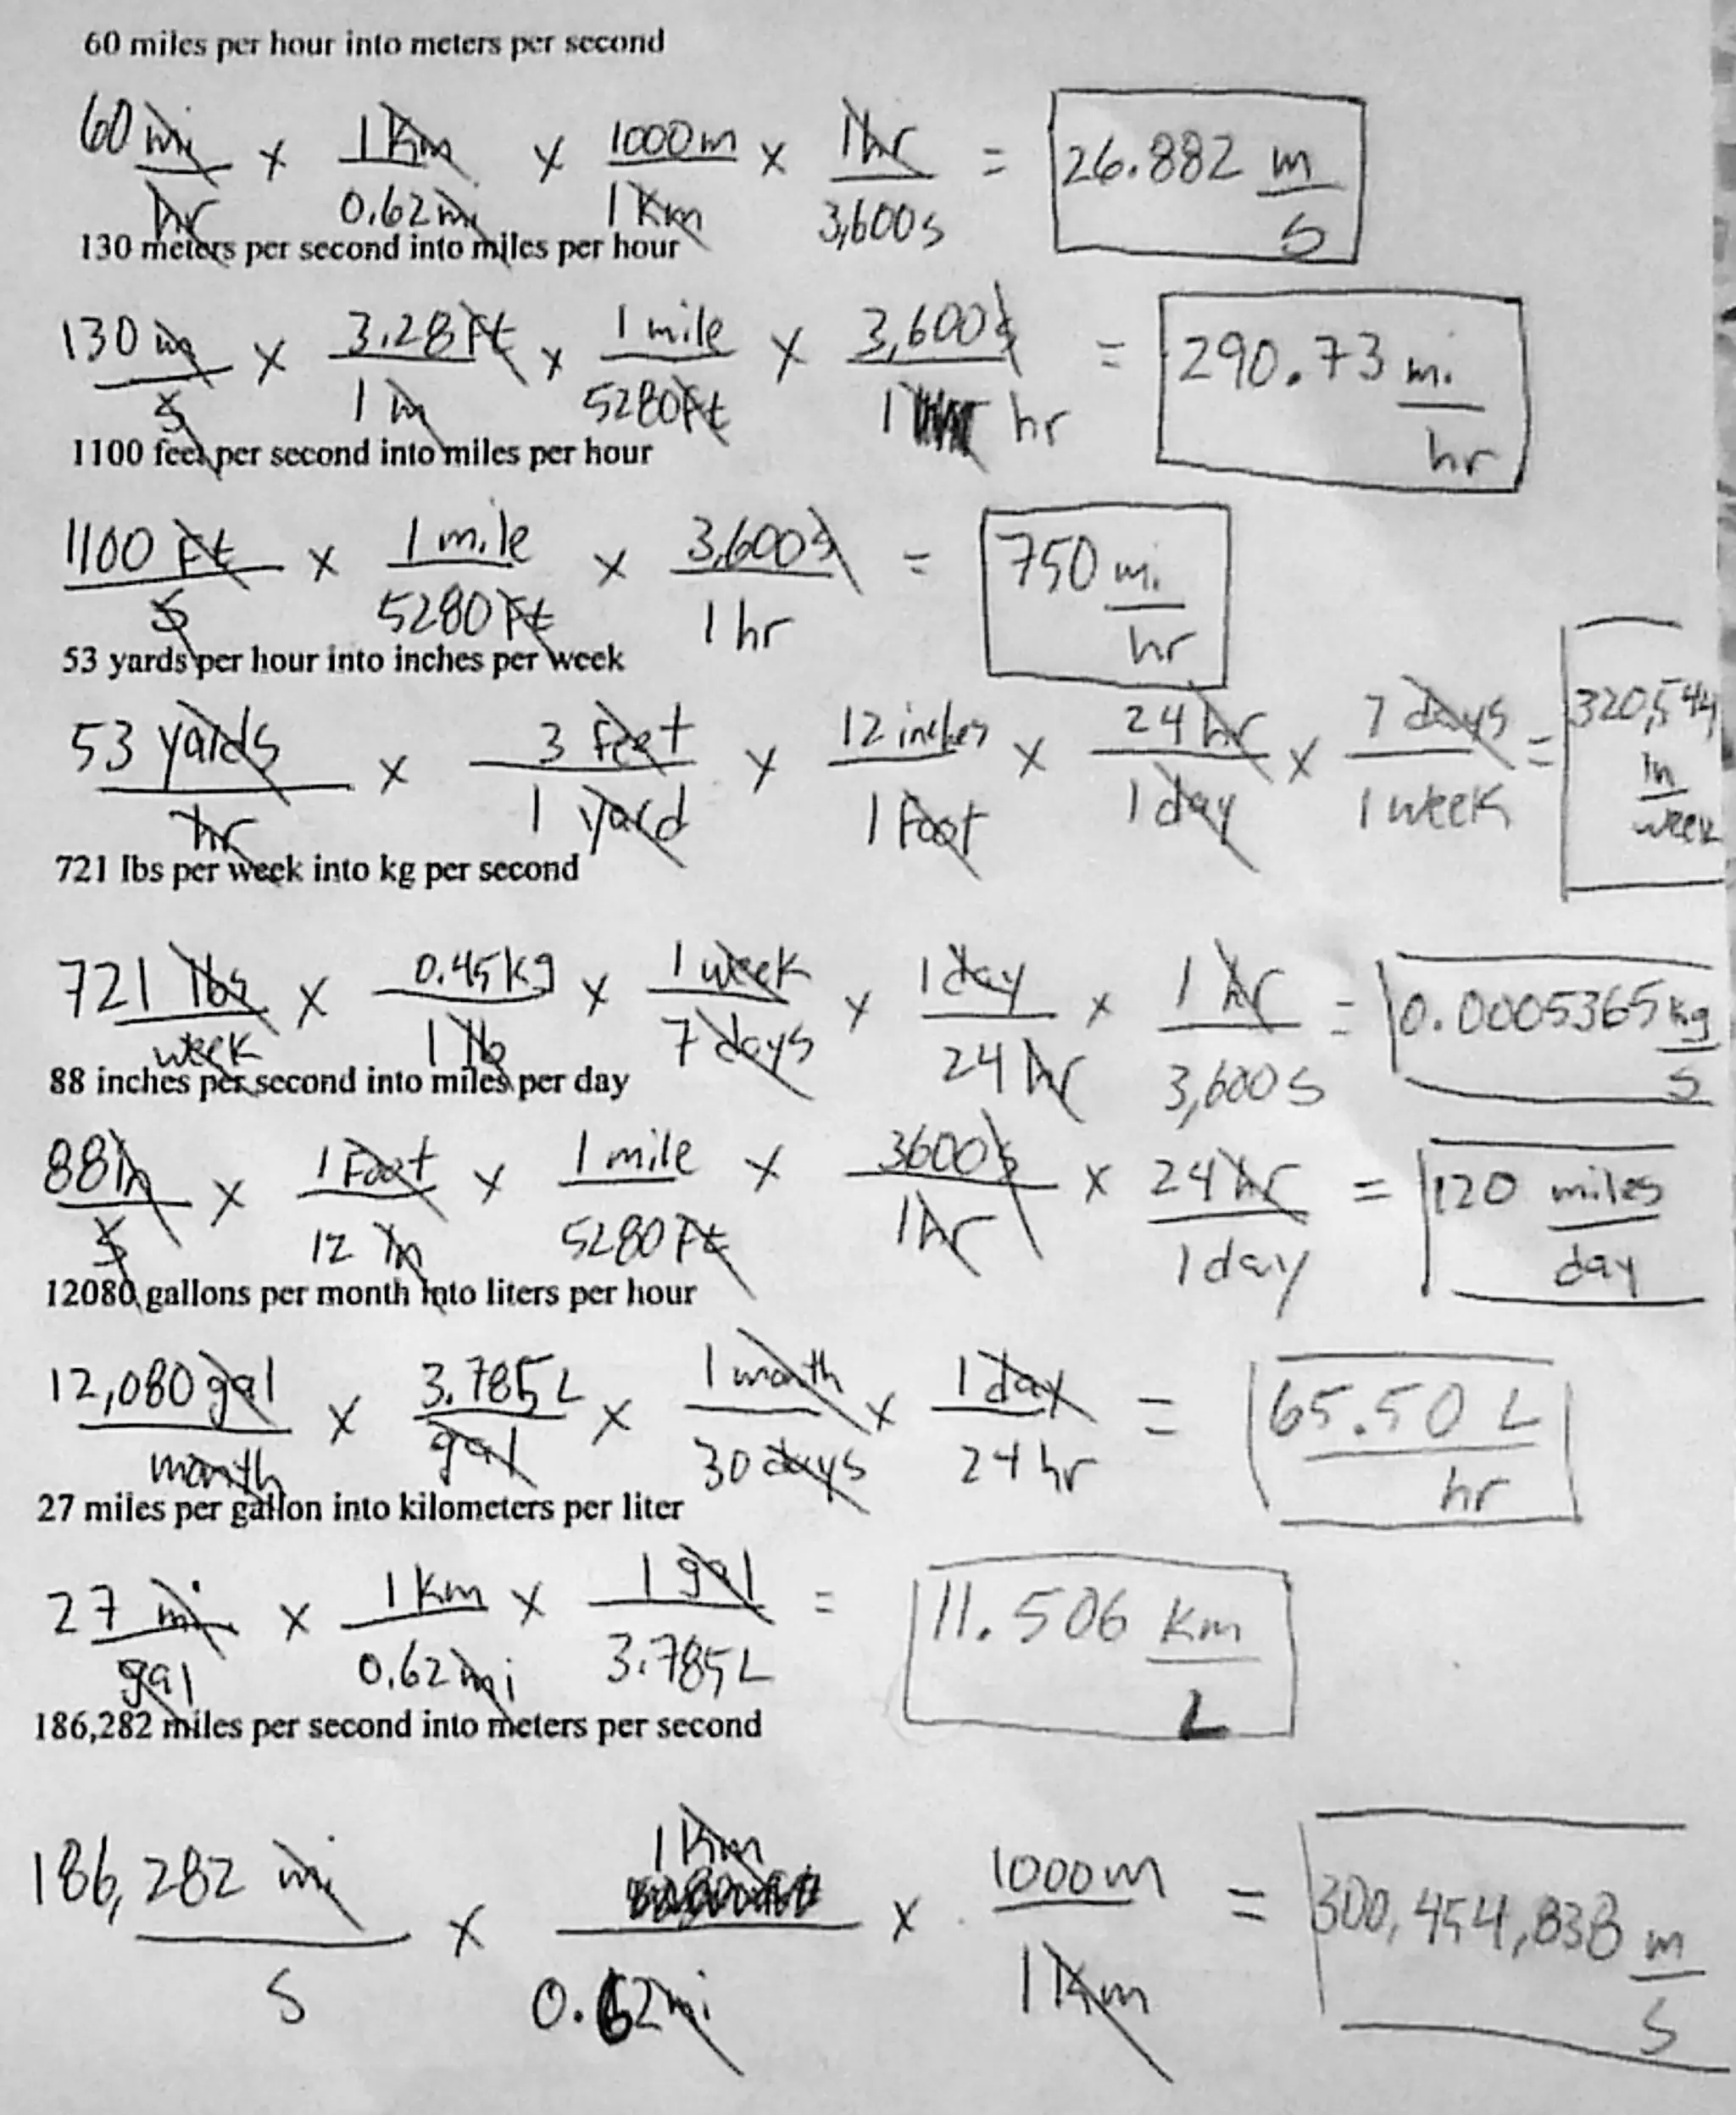 60 miles per hour into meters per second
60 mi/hr × 1 Km/0.62 mi × 1000 m/1 Km × 1 hr/3,600 s = 26.882 m/s
130 meters per second into miles per hour
130 m/s × 3.28 Ft/1 m × 1 mile/5280 Ft × 3,600 s/1 hr = 290.73 mi/hr
1100 feet per second into miles per hour
1100 Ft/s × 1 mile/5280 Ft × 3,600 s/1 hr = 750 mi/hr
53 yards per hour into inches per week
53 yards/hr × 3 feet/1 yard × 12 inches/1 Foot × 24 hr/1 day × 7 days/1 week = 320,544 in/week
721 lbs per week into kg per second
721 lbs/week × 0.45 kg/1 lb × 1 week/7 days × 1 day/24 hr × 1 hr/3,600 s = 0.0005365 kg/s
88 inches per second into miles per day
88 in/s × 1 Foot/12 in × 1 mile/5280 Ft × 3600 s/1 hr × 24 hr/1 day = 120 miles/day
12080 gallons per month into liters per hour
12,080 gal/month × 3.785 L/gal × 1 month/30 days × 1 day/24 hr = 65.50 L/hr
27 miles per gallon into kilometers per liter
27 mi/gal × 1 Km/0.62 mi × 1 gal/3.785 L = 11.506 Km/L
186,282 miles per second into meters per second
186,282 mi/s × 1 Km/0.62 mi × 1000 m/1 Km = 300,454,838 m/s